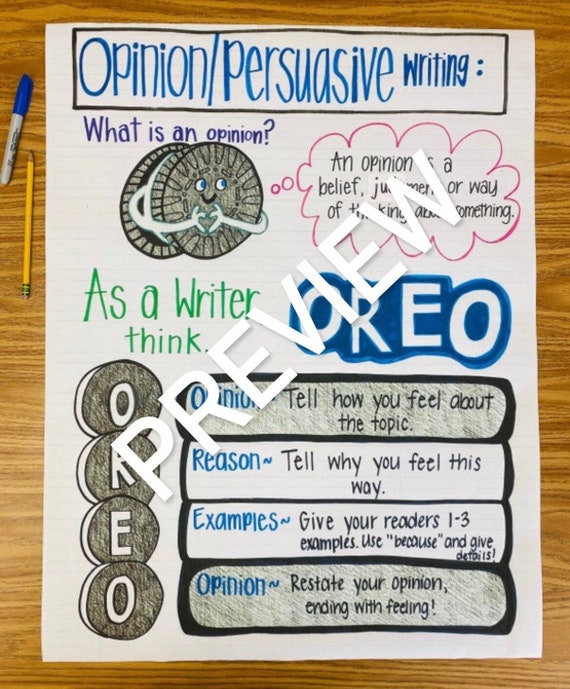 Opinion/Persuasive Writing:
What is an opinion?
An opinion is a
belief, judgement, or way
of thinking about something.
As a Writer
think.
OREO
O
Opinion~ Tell how you feel about
the topic.
R
Reason~ Tell why you feel this
way.
E
Examples~ Give your readers 1-3
examples. Use "because" and give
details!
O
Opinion~ Restate your opinion,
ending with feeling!
PREVIEW
Sharpie